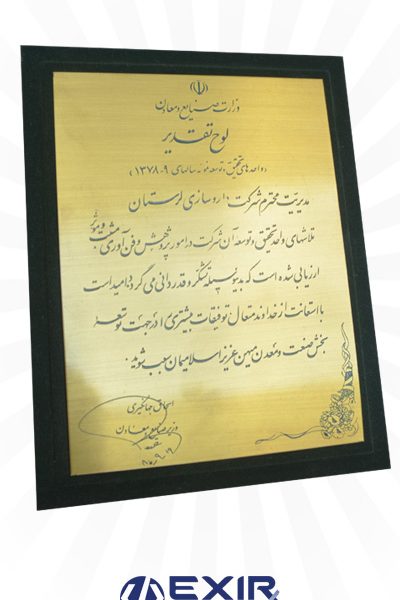 وزارت صنایع و معادن
لوح تقدیر
(واحدهای تحقیق و توسعه نمونه سالهای ۹-۱۳۷۸)
مدیریت محترم شرکت: داروسازی لرستان
تلاشهای واحد تحقیق و توسعه آن شرکت در امور پژوهش و فن آوری مثبت و موثر
ارزیابی شده است که بدینوسیله تشکر و قدردانی می گردد امید است
با استعانت از خداوند متعال توفیقات بیشتری را در جهت توسعه
بخش صنعت و معدن میهن عزیز اسلامیمان سبب شوید.
اسحاق جهانگیری
وزیر صنایع و معادن
EXIR